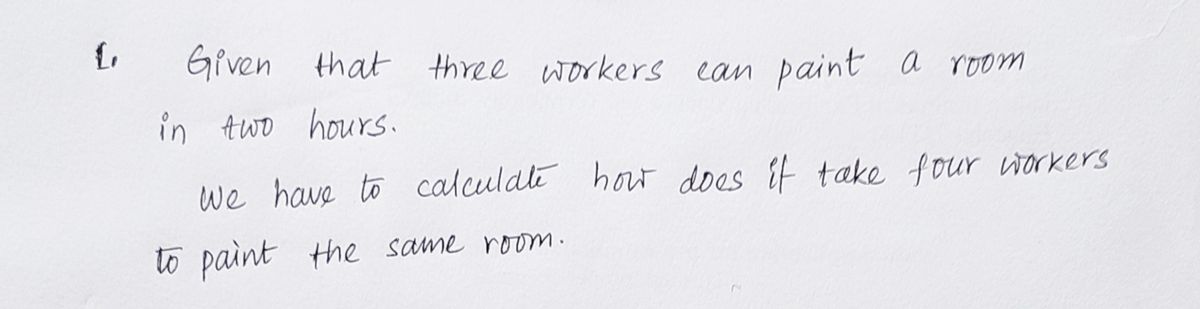 1. Given that three workers can paint a room
in two hours.
We have to calculate how does it take four workers
to paint the same room.